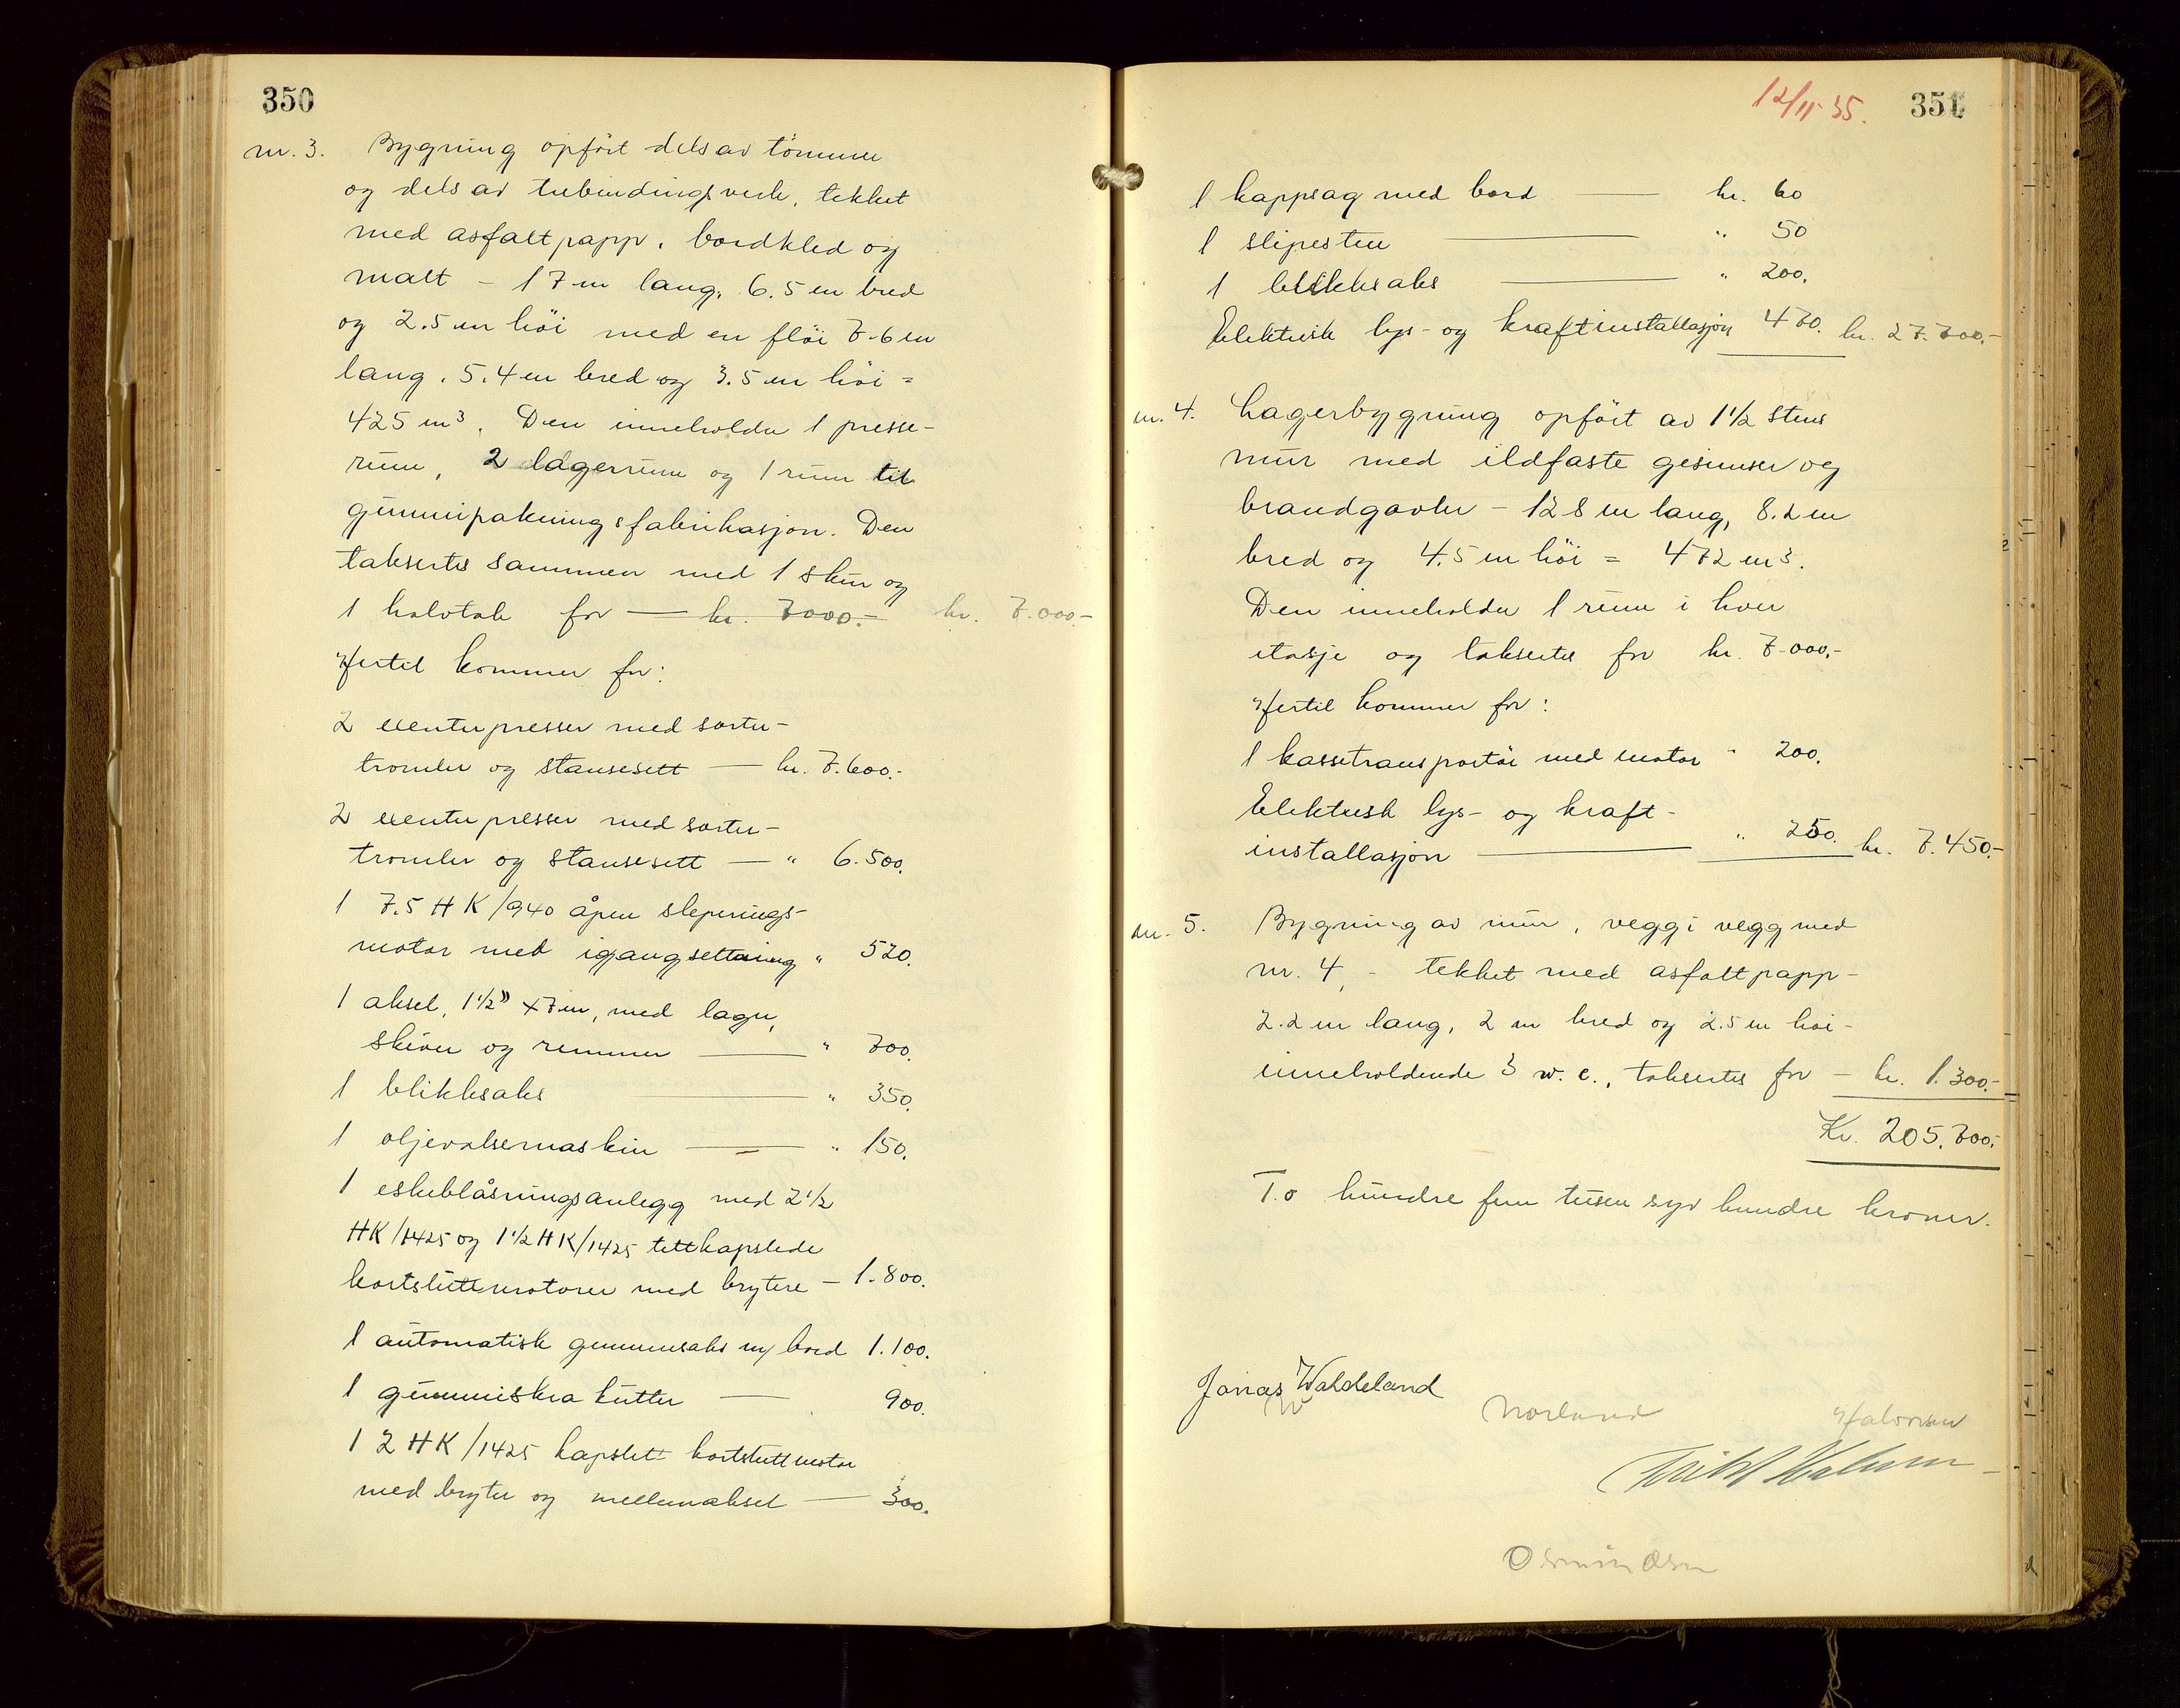 350
nr. 3. Bygning opført dels av tømmer
og dels av trebindingsverk, tekket
med asfaltpapp, bordkled og
malt - 17 m lang, 6.5 m bred
og 2.5 m høi med en fløi 7.6 m
lang, 5.4 m bred og 3.5 m høi =
425 m³. Den inneholder 1 presse-
rum, 2 lagerrum og 1 rum til
gummipakningsfabrikasjon. Den
takseres sammen med 1 skur og
1 halvtak for — kr. 7000.- kr. 7.000.-
Hertil kommer for:
2 exenterpresser med sorter-
tromler og stansesett — kr. 7.600.-
2 exenterpresser med sorter-
tromler og stansesett — " 6.500.
1 7.5 HK/940 åpen sleperings-
motor med igangsettning " 520.
1 aksel, 1 1/2" x 7 m, med lager,
skiver og remmer — " 700.
1 blikksaks — " 350.
1 oljevalsemaskin — " 150.
1 eskeblåsningsanlegg med 2 1/2
HK/1425 og 1 1/2 HK/1425 tettkapslede
kortsluttmotorer med brytere — 1.800.
1 automatisk gummisaks m/ bord 1.100.
1 gummiskrakutter — 900.
1 2 HK/1425 kapslett kortsluttmotor
med bryter og mellemaksel — 300.
12/11 35. 351
1 kappsag med bord — kr. 60
1 slipesten — " 50
1 blikksaks — " 200.
Elektrisk lys- og kraftinstallasjon 470. kr. 27.700.-
nr. 4. Lagerbygning opført av 1 1/2 stens
mur med ildfaste gesimser og
brandgavler - 12 8 m lang, 8.2 m
bred og 4.5 m høi = 472 m³.
Den inneholder 1 rum i hver
etasje og takseres for kr. 7.000.-
Hertil kommer for:
1 kassetransportør med motor " 200.
Elektrisk lys- og kraft-
installasjon — " 250. kr. 7.450.-
nr. 5. Bygning av mur, vegg i vegg med
nr. 4, - tekket med asfaltpapp -
2.2 m lang, 2 m bred og 2.5 m høi -
inneholdende 3 w.c., takseres for — kr. 1.300.-
Kr. 205.700.-
To hundre fem tusen syv hundre kroner.
Jonas Waldeland
Norland Halvorsen
Osmundsen